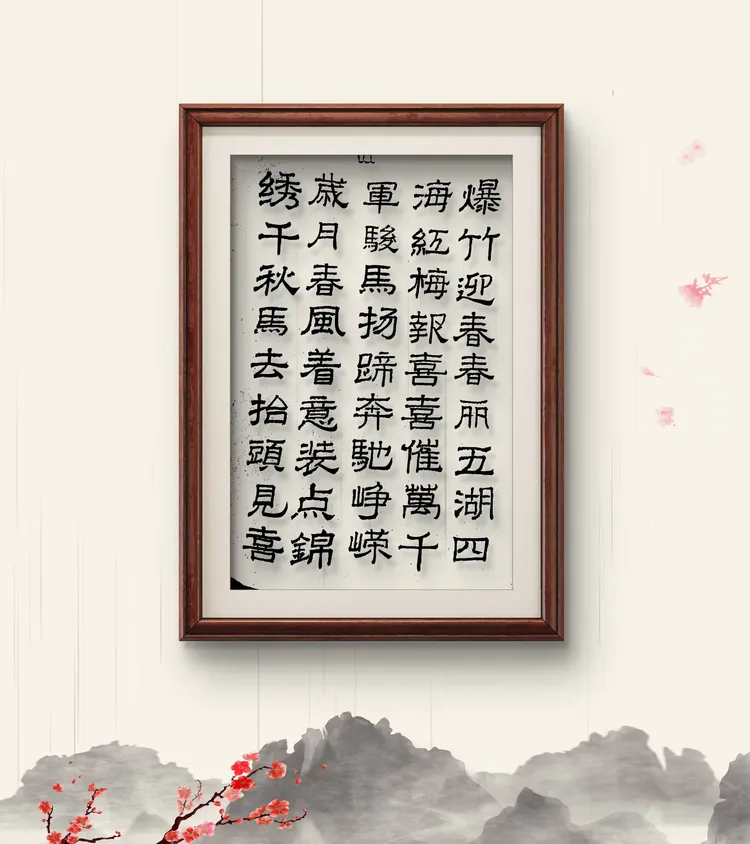 爆竹迎春春丽五湖四
海紅梅報喜喜催萬千
軍駿馬扬蹄奔馳峥嵘
歲月春風着意装点錦
绣千秋馬去抬頭見喜